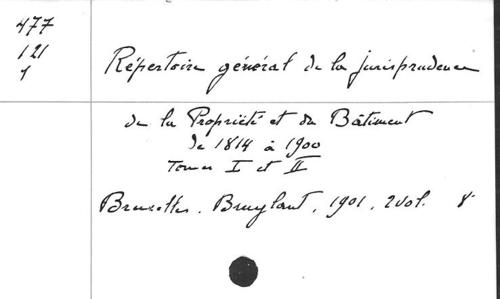 477
121
1
Répertoire général de la jurisprudence
de la Propriété et du Bâtiment
de 1814 à 1900
Tomes I et II
Bruxelles. Bruylant, 1901, 2 vol. 8°